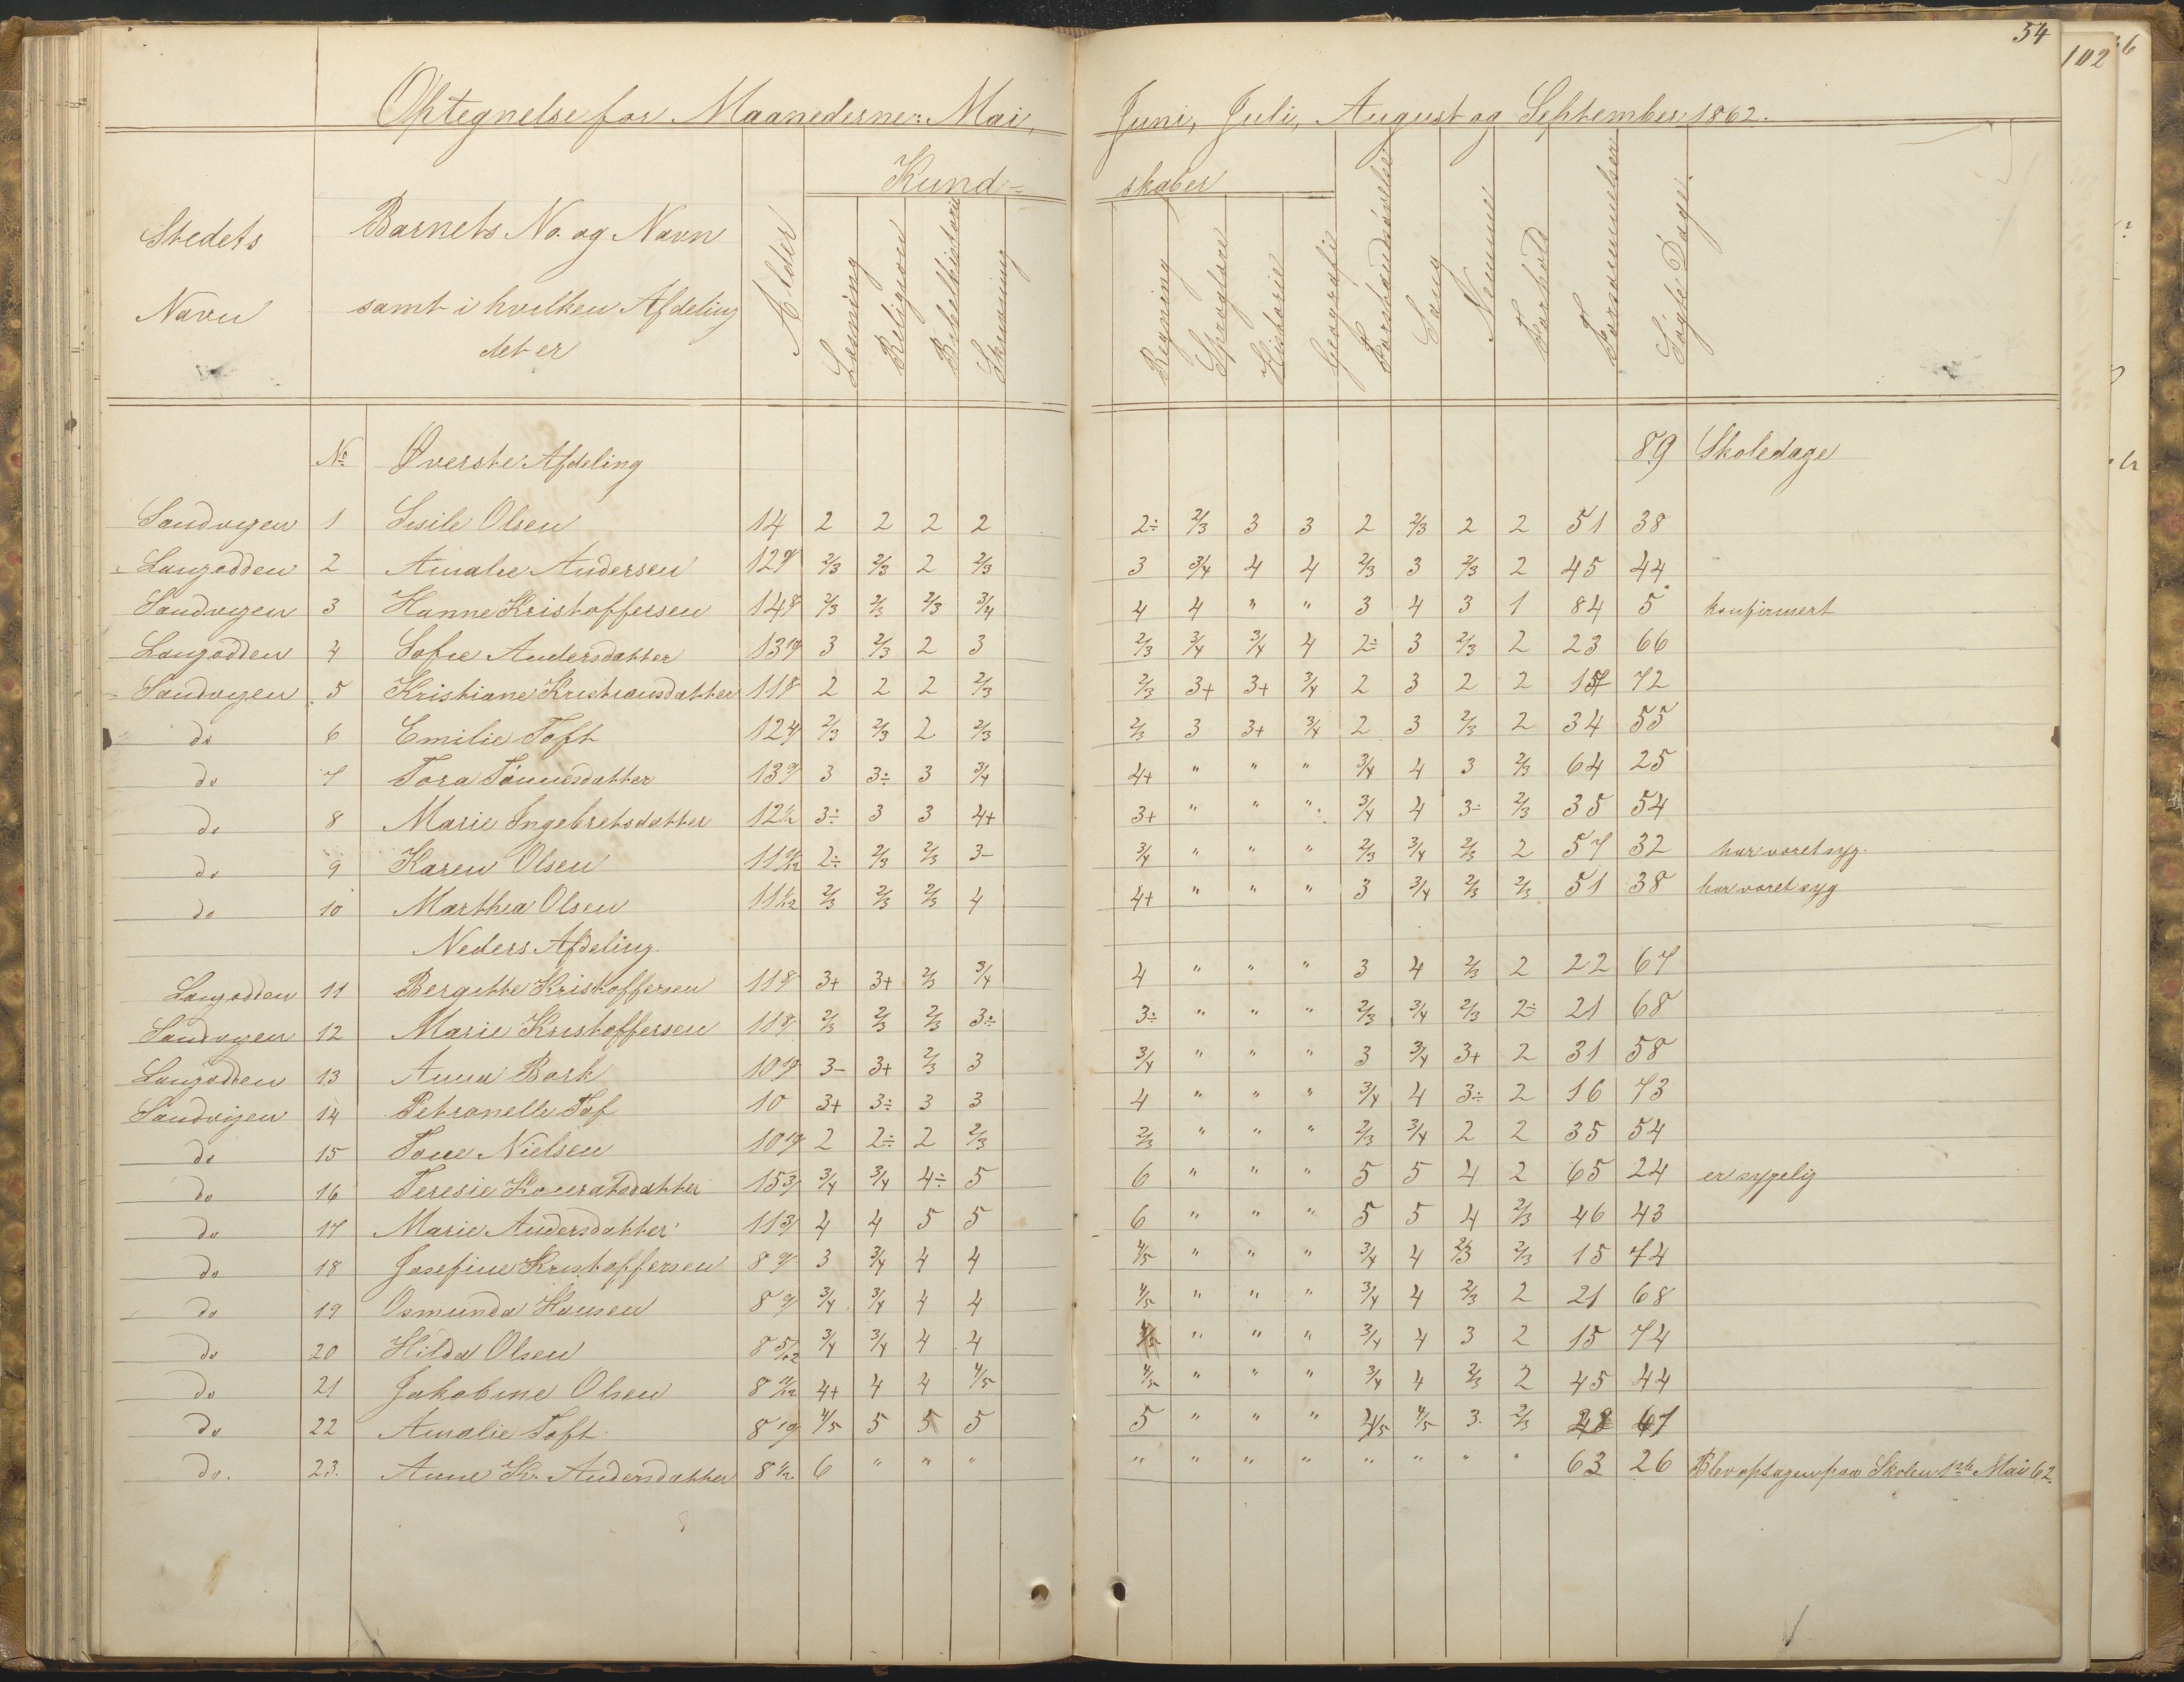 54
102
6
Optegnelse for Maanederne: Mai, Juni, Juli, August og September 1862.
Stedets Navn | Barnets No. og Navn samt i hvilken Afdeling det er | Alder | Kundskaber | Læsning | Religion | Bibelhistorie | Skrivning | Regning | Sproglære | Historie | Geografi | Forstandsøvelse | Sang | Nemme | Forhold | Forsømmelser | Søgte Dage
No. Øverste Afdeling 89 Skoledage
Sandvigen 1 Sisile Olsen 14 2 2 2 2 2÷ 2/3 3 3 2 2/3 2 2 51 38
Langodden 2 Amalie Andersen 12 2/3 2/3 2 2/3 3 3/4 4 4 2/3 3 2/3 2 45 44
Sandvigen 3 Hanne Kristoffersen 14 2/3 2/3 2/3 3/4 4 4 " " 3 4 3 1 84 5 konfirmert
Langodden 4 Sofie Andersdatter 13 3 2/3 2 3 2/3 3/4 3/4 4 2÷ 3 2/3 2 23 66
Sandvigen 5 Kristiane Kristiansdatter 11 2 2 2 2/3 2/3 3+ 3+ 3/4 2 3 2 2 17 72
do 6 Emilie Toft 12 2/3 2/3 2 2/3 2/3 3 3+ 3/4 2 3 2/3 2 34 55
do 7 Tora Tønnesdatter 13 3 3÷ 3 3/4 4+ " " " 3/4 4 3 2/3 64 25
do 8 Marie Ingebretsdatter 12 3÷ 3 3 4+ 3+ " " " 3/4 4 3÷ 2/3 35 54
do 9 Karen Olsen 11 2÷ 2/3 2/3 3- 3/4 " " " 2/3 3/4 2/3 2 57 32 har været syg.
do 10 Marthea Olsen 11 2/3 2/3 2/3 4 4+ " " " 3 3/4 2/3 2/3 51 38 har været syg
Neders Afdeling.
Langodden 11 Bergitte Kristoffersen 11 3+ 3+ 2/3 3/4 4 " " " 3 4 2/3 2 22 67
Sandvigen 12 Marie Kristoffersen 11 2/3 2/3 2/3 3÷ 3÷ " " " 2/3 3/4 2/3 2÷ 21 68
Langodden 13 Anna Bork 10 3- 3+ 2/3 3 3/4 " " " 3 3/4 3+ 2 31 58
Sandvigen 14 Petronelle Tof 10 3+ 3÷ 3 3 4 " " " 3/4 4 3÷ 2 16 73
do 15 Tone Nielsen 10 2 2÷ 2 2/3 2/3 " " " 2/3 3/4 2 2 35 54
do 16 Teresie Konratsdatter 15 3/4 3/4 4÷ 5 6 " " " 5 5 4 2 65 24 er sygelig
do 17 Marie Andersdatter 11 4 4 5 5 6 " " " 5 5 4 2/3 46 43
do 18 Josefine Kristoffersen 8 3 3/4 4 4 4/5 " " " 3/4 4 2/3 2/3 15 74
do 19 Osmunda Hansen 8 3/4 3/4 4 4 4/5 " " " 3/4 4 2/3 2 21 68
do 20 Hilda Olsen 8 5/12 3/4 3/4 4 4 4/5 " " " 3/4 4 3 2 15 74
do 21 Jakobine Olsen 8 11/12 4+ 4 4 4/5 4/5 " " " 3/4 4 2/3 2 45 44
do 22 Amalie Toft 8 4/5 5 5 5 5 " " " 4/5 4/5 3 2/3 28 61
do. 23. Anne K. Andersdatter 8 6 " " " " " " " " " " " 63 26 Blev optagen paa Skolen 1ste Mai 62.